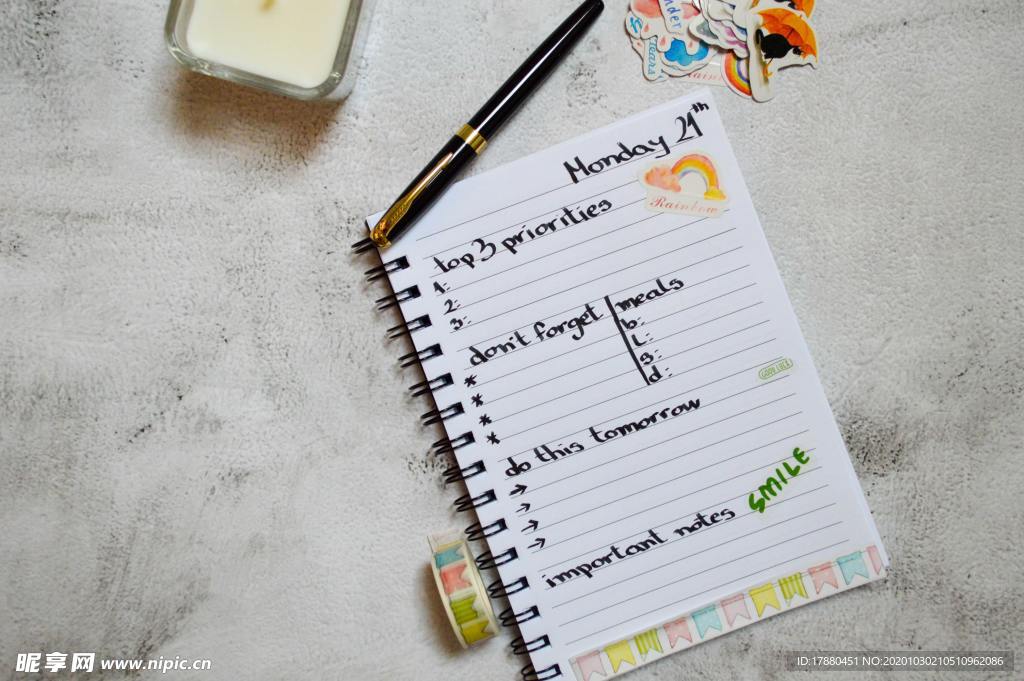 Monday 21th
Rainbow
top 3 priorities
1:
2:
3:
don't forget
*
*
*
*
meals
b:
L:
s:
d:
GOOD LUCK
do this tomorrow
→
→
→
→
SMILE
important notes
昵享网 www.nipic.cn
ID:17880451 NO:20201030210510962086